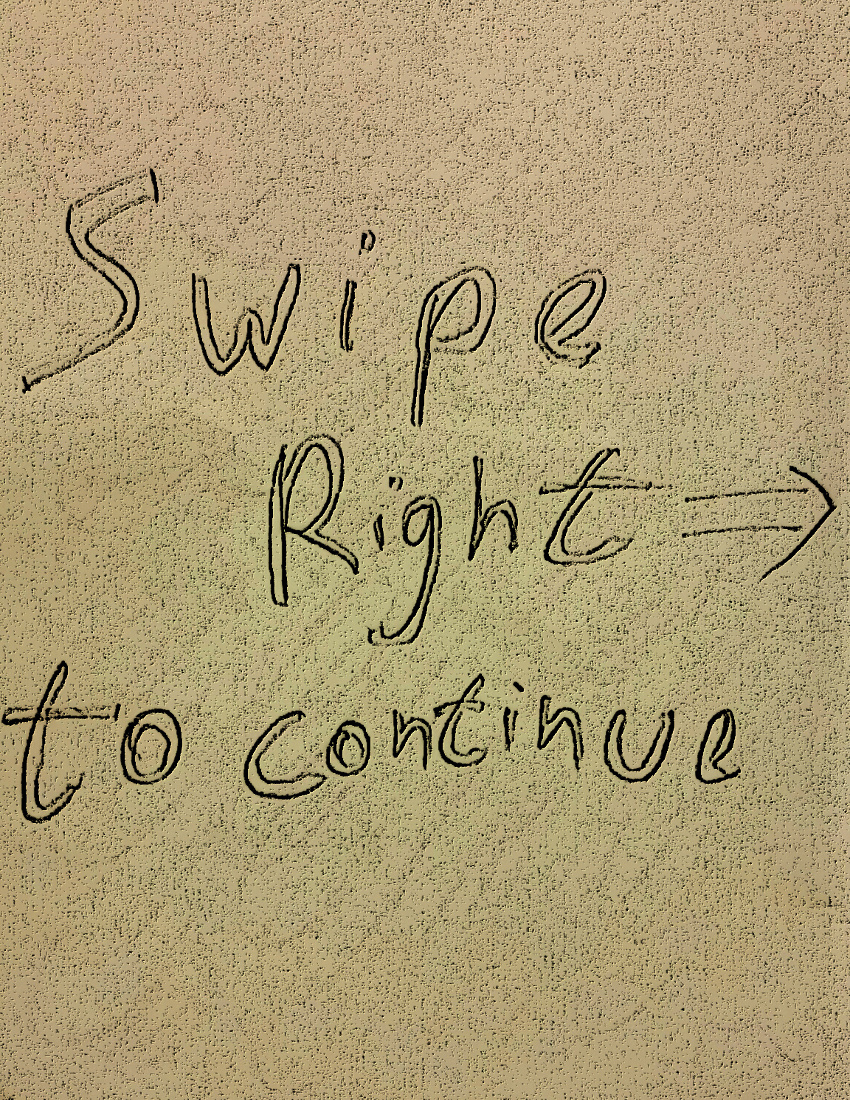 Swipe
Right →
to continue